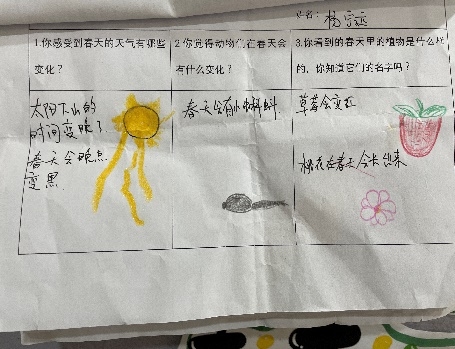 姓名：杨
1.你感受到春天的天气有哪些
变化？
2 你觉得动物们在春天会
有什么变化？
3.你看到的春天里的植物是什么样
的，你知道它们的名字吗？
太阳下山的
时间变晚了
春天会晚点
变黑
春天会有小蝌蚪
草莓会变红
桃花在春天会长出来